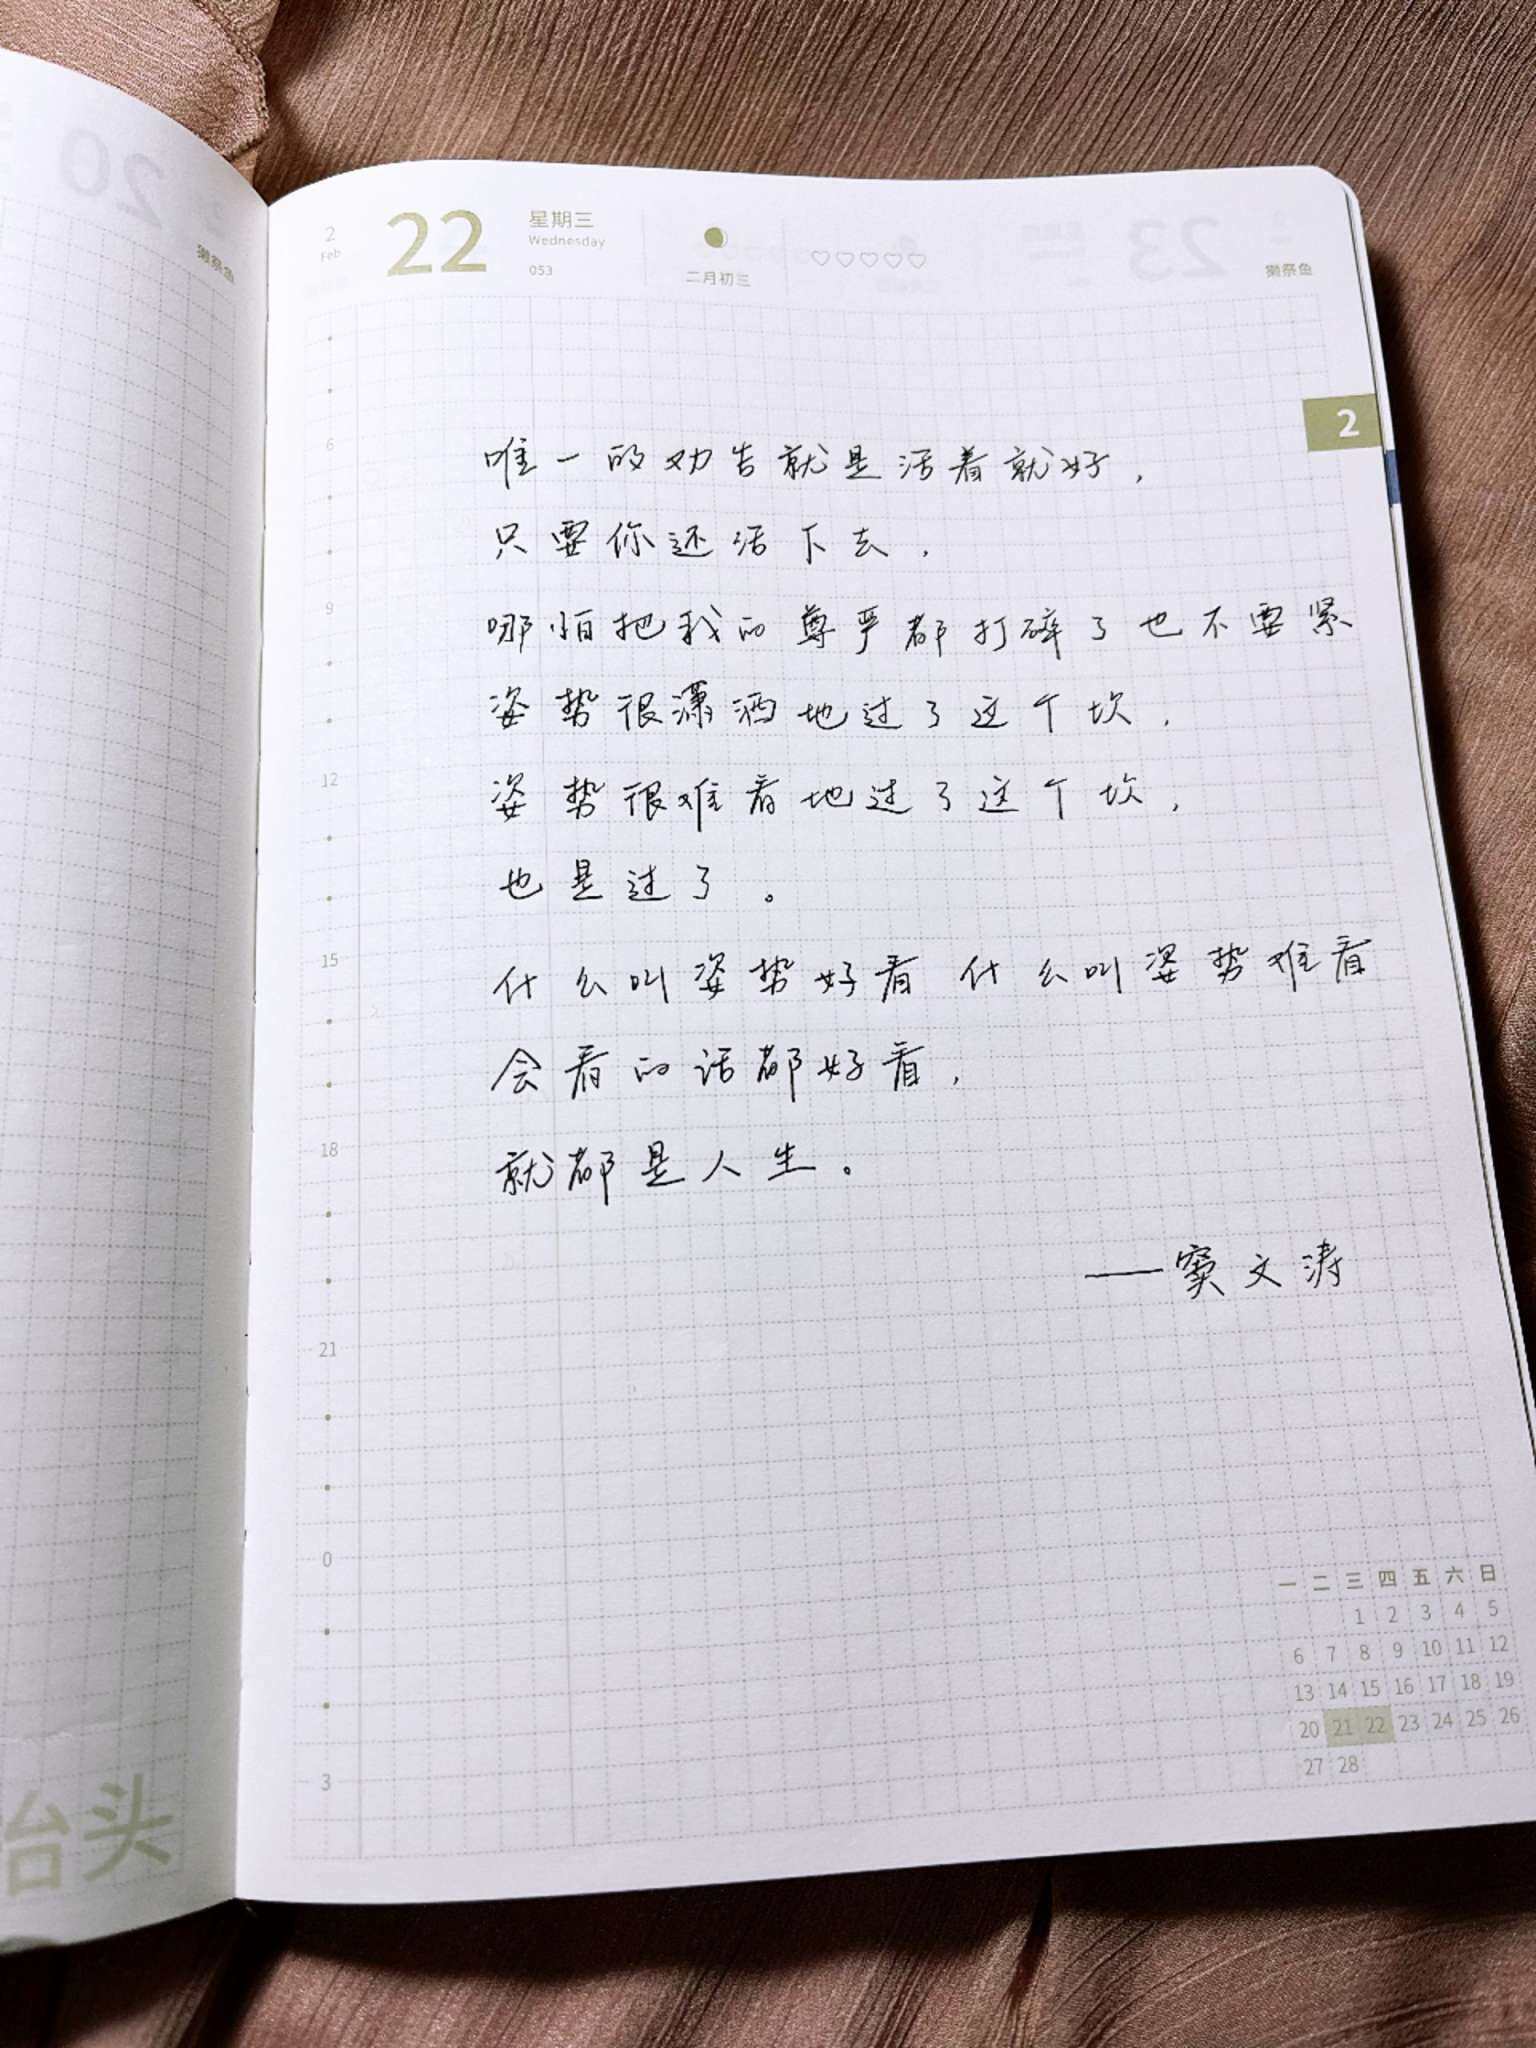 20
獭祭鱼
2
Feb
22
星期三
Wednesday
053
二月初三
獭祭鱼
2
6
9
12
15
18
21
0
3
唯一的劝告就是活着就好，
只要你还活下去，
哪怕把我的尊严都打碎了也不要紧
姿势很潇洒地过了这个坎，
姿势很难看地过了这个坎，
也是过了。
什么叫姿势好看 什么叫姿势难看
会看的话都好看，
就都是人生。
——窦文涛
一 二 三 四 五 六 日
1 2 3 4 5
6 7 8 9 10 11 12
13 14 15 16 17 18 19
20 21 22 23 24 25 26
27 28
抬头